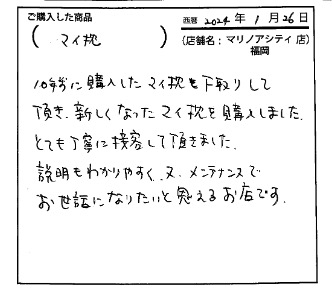 ご購入した商品
( マイ枕 )
西暦 2024 年 1 月 26 日
(店舗名:マリノアシティ 店)
福岡
10年前に購入したマイ枕を下取りして
頂き、新しくなったマイ枕を購入しました。
とても丁寧に接客して頂きました。
説明もわかりやすく、又、メンテナンスで
お世話になりたいと思えるお店です。